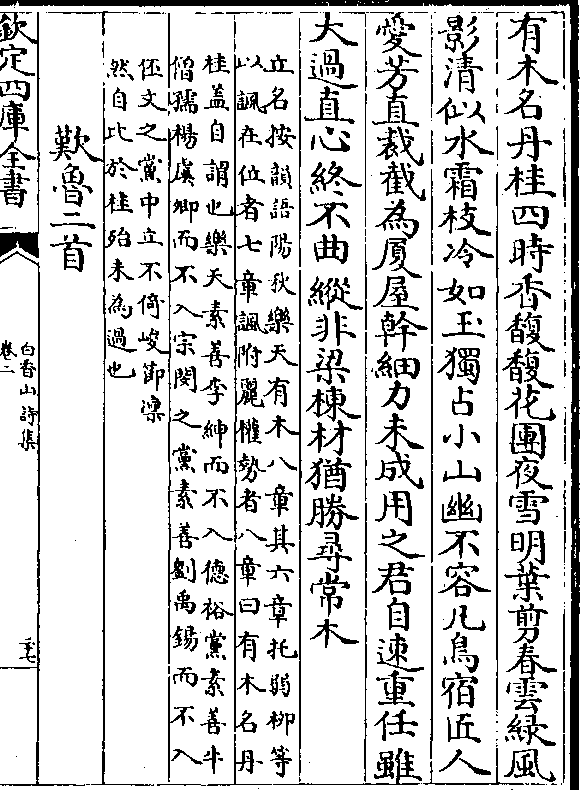 有木名丹桂四時香馥馥花團夜雪明葉剪春雲綠風
影清似水霜枝冷如玉獨占小山幽不容凡鳥宿匠人
愛芳直裁截為厦屋幹細力未成用之君自速重任雖
大過直心終不曲縱非梁棟材猶勝尋常木
立名按韻語陽秋樂天有木八章其六章托弱柳等
以諷在位者七章諷附麗權勢者八章曰有木名丹
桂盖自謂也樂天素善李紳而不入德裕黨素善牛
僧孺楊虞卿而不入宗閔之黨素善劉禹錫而不入
伾文之黨中立不倚峻節凜
然自比於桂殆未為過也
歎魯二首
欽定四庫全書
白香山詩集
卷二